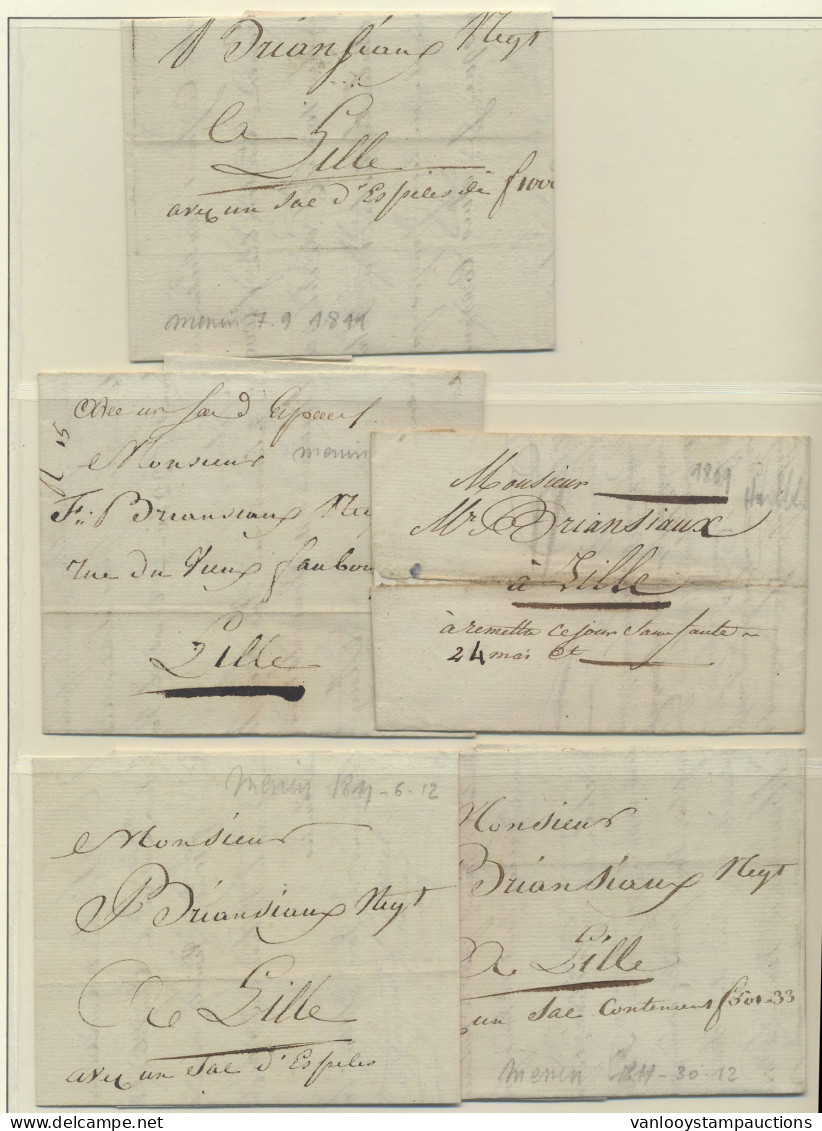 Briansiaux Negt
a
Lille
avec un Sac d'Espèces de f1000
Menin 7.9 1811
avec un Sac d'
Monsieur
menin
Fs: Briansiaux Neg
rue du Vieux faubourg
Lille
1809
Monsieur
Mr. Briansiaux
à Lille
à remettre ce jour sans faute
24 mai
Menin 1811-6.12
Monsieur
Briansiaux Negt
A Lille
avec un Sac d'Espèces
Monsieur
Briansiaux Negt
A Lille
un Sac Contenant f501-33
Menin 1811-30.12
vanlooystampauctions